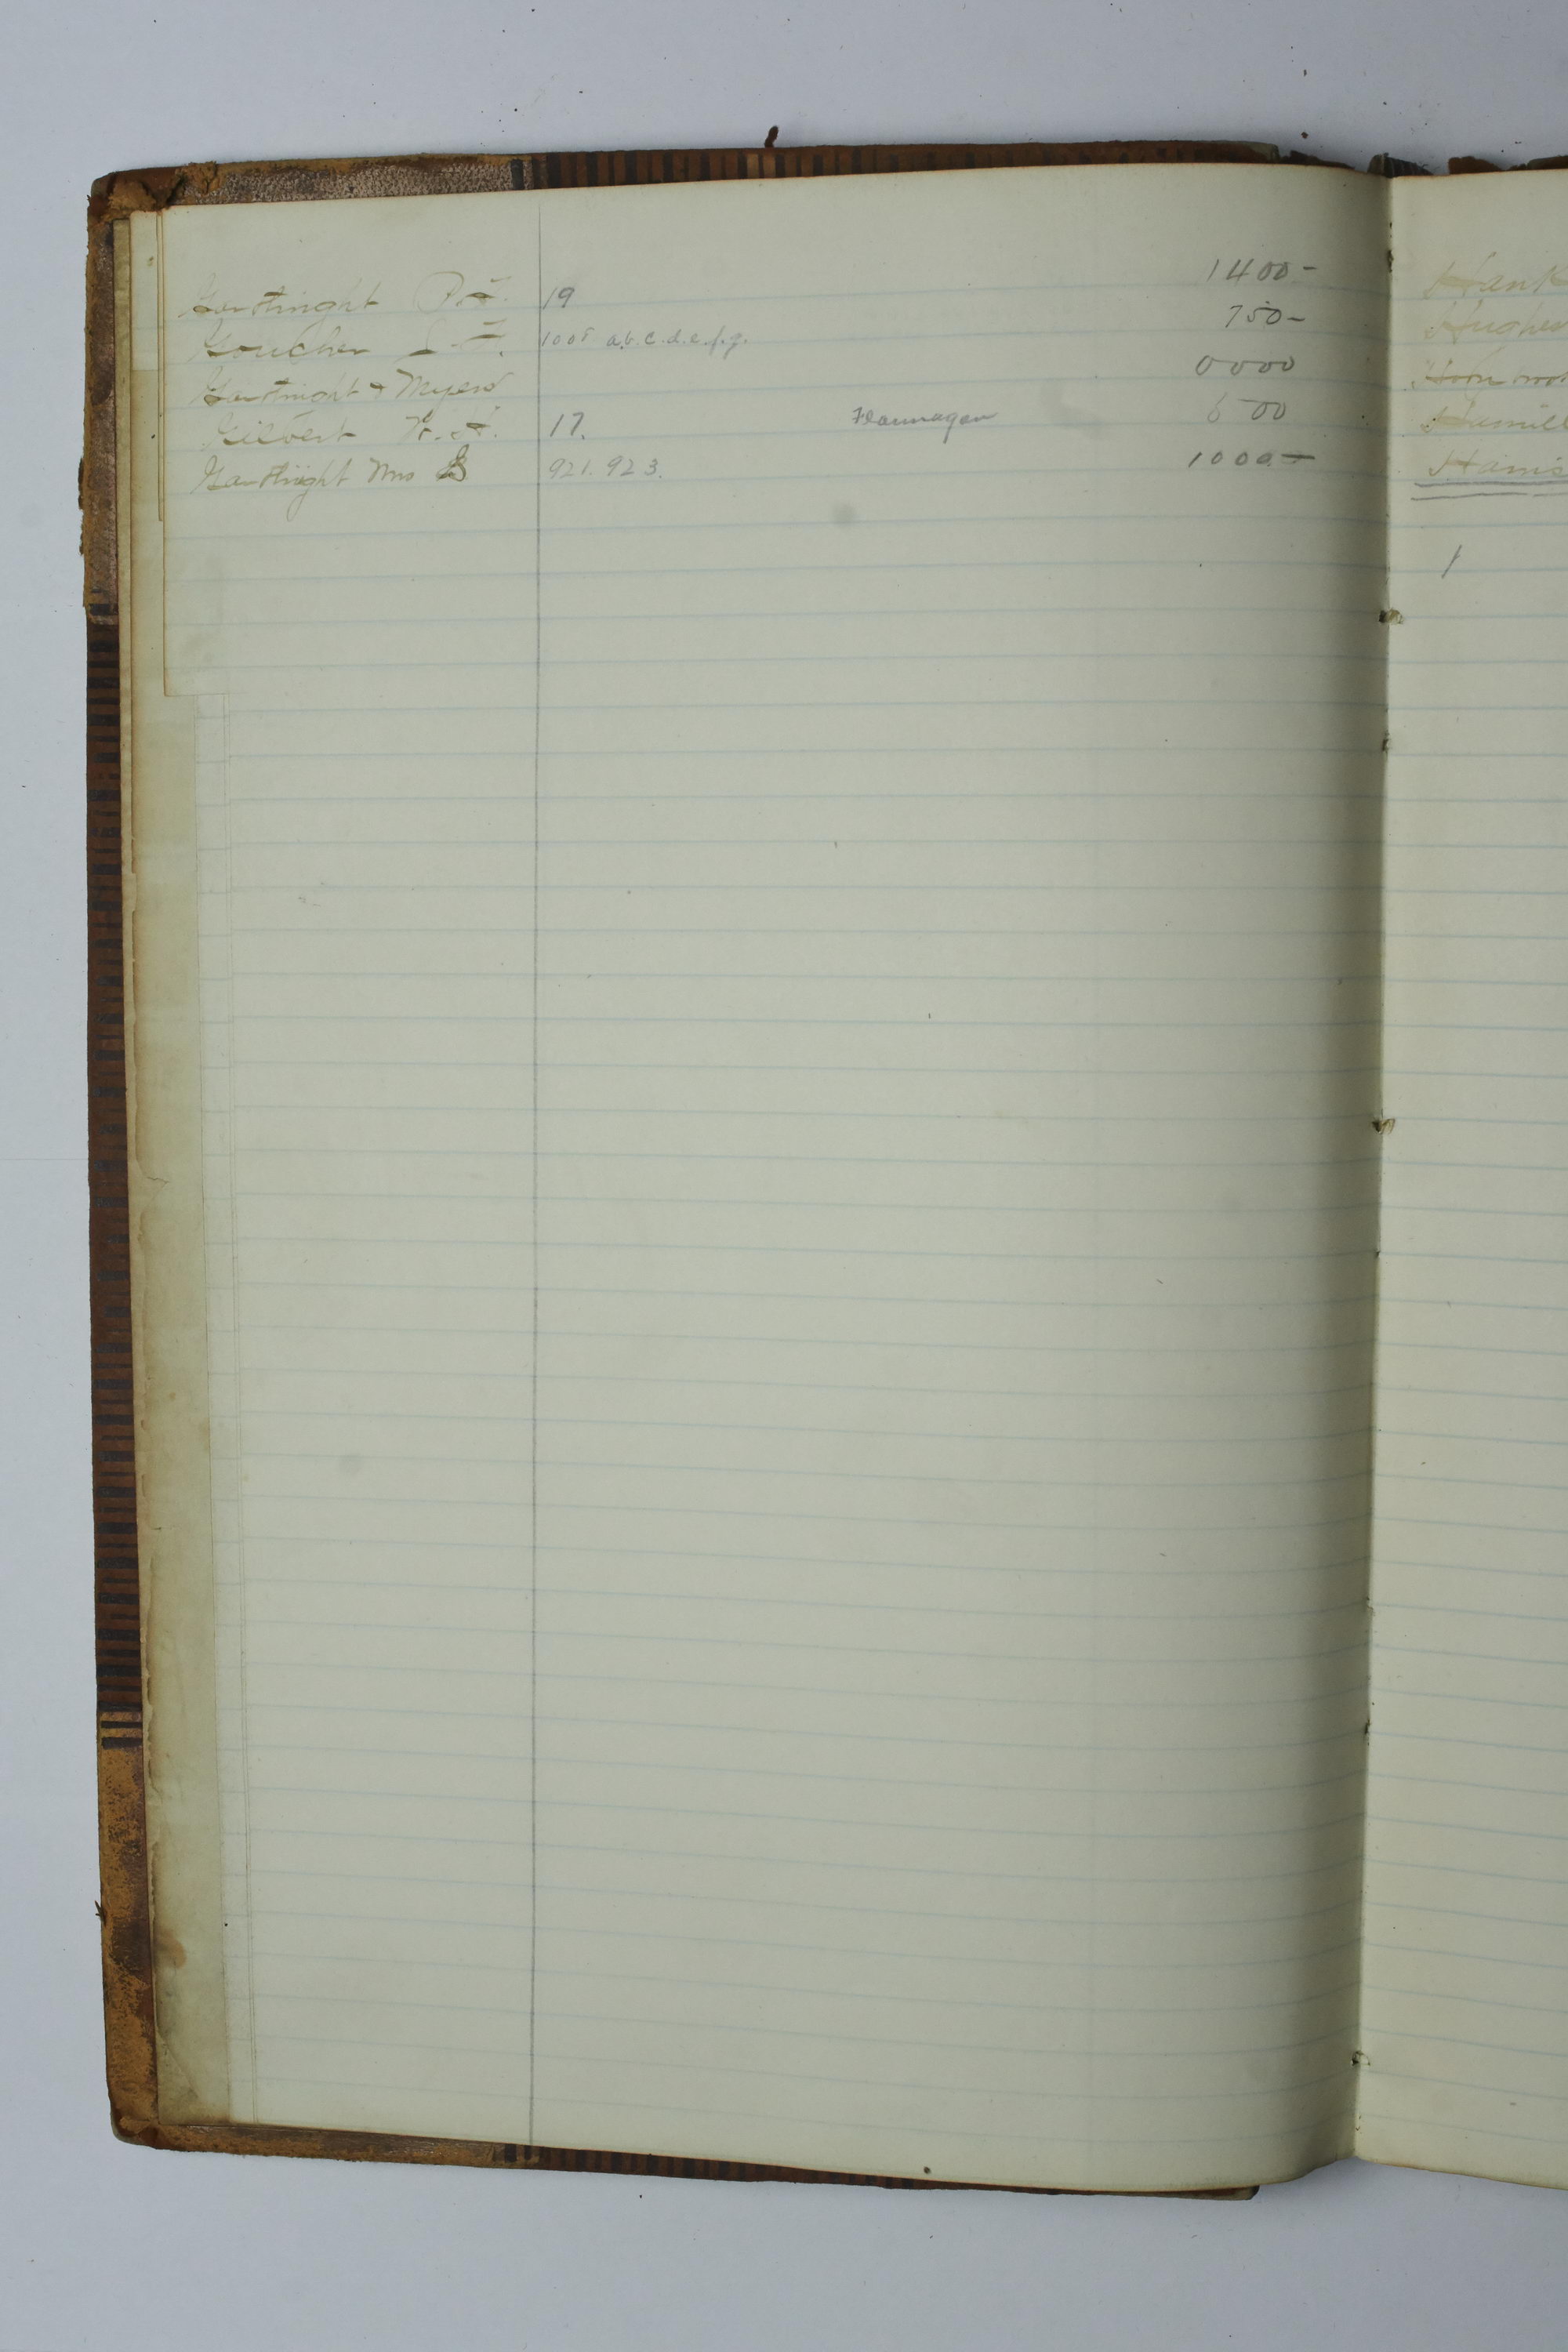 Garthright P. F. 19 1400-
Goucher S. F. 1008 a.b.c.d.e.f.g. 750-
Garthright & Myers 0000
Gilbert W. H. 17. Flannagan 600
Garthright Mrs B 921. 923. 1000.-
Hank
Hughes
Horn brook
Hamill
Harris
1